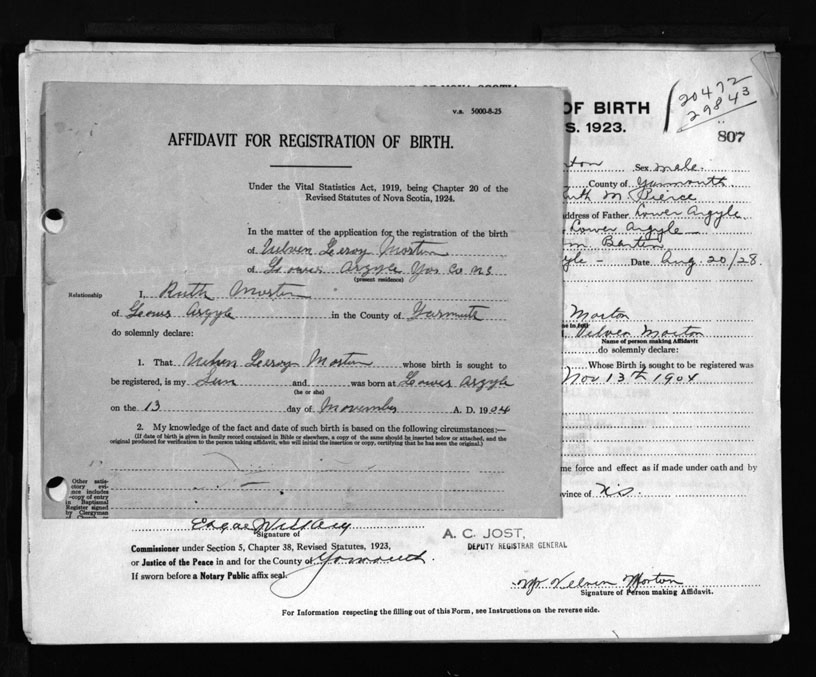 v.s. 5000-8-25
OF BIRTH
S. 1923.
20472
29843
807
AFFIDAVIT FOR REGISTRATION OF BIRTH.
Under the Vital Statistics Act, 1919, being Chapter 20 of the
Revised Statutes of Nova Scotia, 1924.
In the matter of the application for the registration of the birth
of Velven Leroy Morton
of Lower Argyle Yar Co N.S
(present residence)
Relationship
I, Ruth Morton
of Lower Argyle in the County of Yarmouth
do solemnly declare:
1. That Velven Leeroy Morton whose birth is sought to
be registered, is my Sun and was born at Lower Argyle
(he or she)
on the 13 day of November A. D. 1904
2. My knowledge of the fact and date of such birth is based on the following circumstances:—
(If date of birth is given in family record contained in Bible or elsewhere, a copy of the same should be inserted below or attached, and the
original produced for verification to the person taking affidavit, who will initial the insertion or copy, certifying that he has seen the original.)
Other satis-
ctory evi-
nce includes
copy of entry
in Baptismal
Register signed
by Clergyman
rton Sex male.
County of Yarmouth
uth M. Pierce
ddress of Father Lower Argyle
Lower Argyle
m Barton
yle – Date Aug. 20/28.
Morton
Velven Morton
Name of person making Affidavit
do solemnly declare:
Whose Birth is sought to be registered was
Nov 13th 1904
me force and effect as if made under oath and by
vince of N.S.
Signature of
Commissioner under Section 5, Chapter 38, Revised Statutes, 1923,
or Justice of the Peace in and for the County of Yarmouth.
If sworn before a Notary Public affix seal.
A. C. JOST,
DEPUTY REGISTRAR GENERAL
Mr Velven Morton
Signature of Person making Affidavit.
For Information respecting the filling out of this Form, see Instructions on the reverse side.